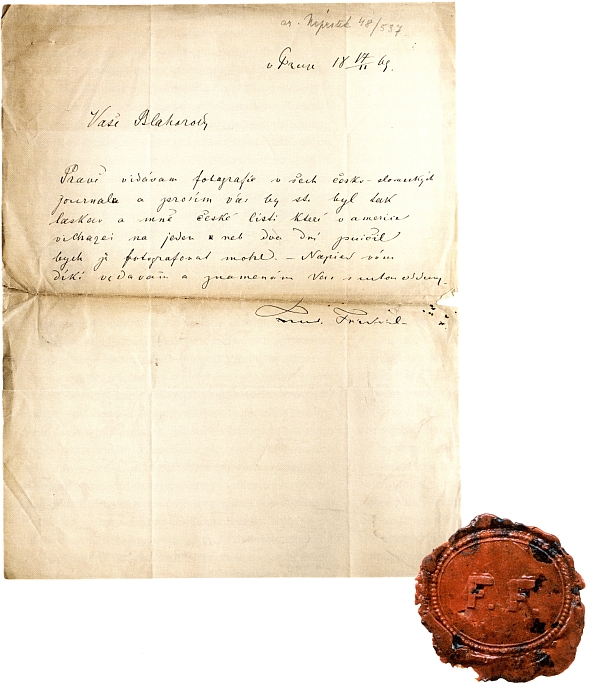 ar. Náprstek 48/537
v Praze 18 17/11 69.
Vaše Blahorody
Pravě vidávam fotografie v šech česko-slovanských
journalu a prosím vás by ste byl tak
laskav a mně české listi které v americe
vichazeí na jeden neb dva dní pučil
bych je fotografovat mohl. – Napřed vám
díki vzdavám a znamenám Vas s uctou
Frant. Fridrich
F. F.